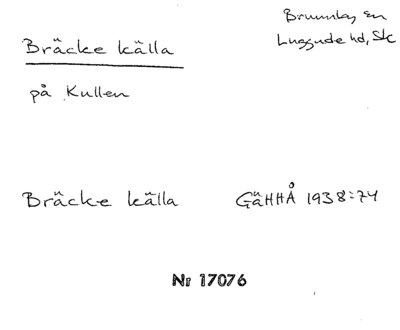 Bräcke källa
Brunnby sn
Luggude hd, Sk
på Kullen
Bräcke källa GäHHÅ 1938:74
Nr 17076